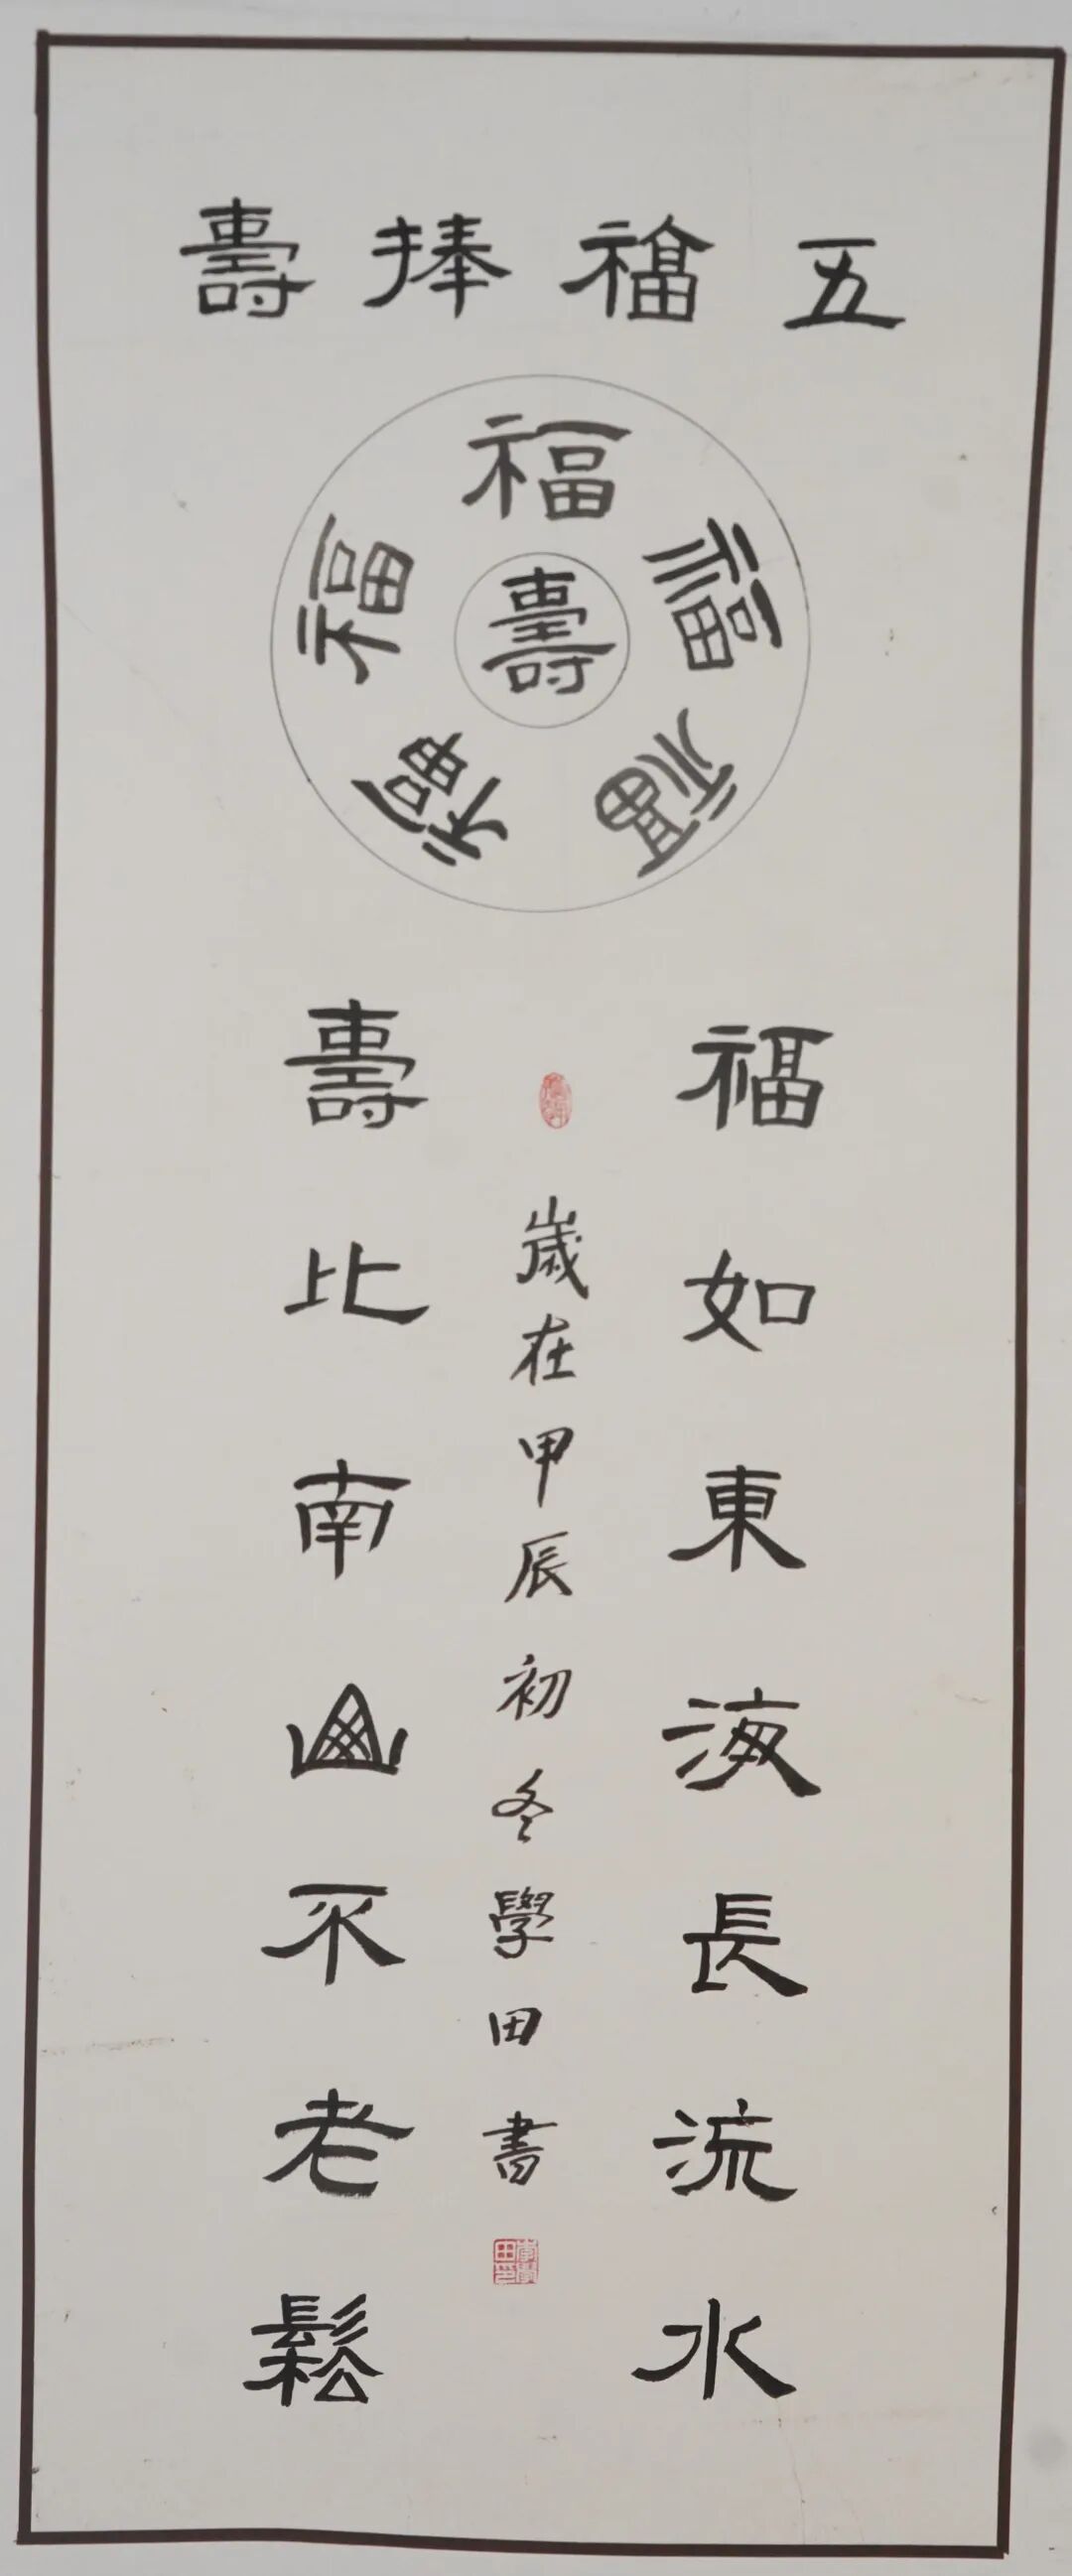 五福捧壽
福
福
福
福
福
壽
福如東海長流水
歲在甲辰初冬學田書
壽比南山不老鬆